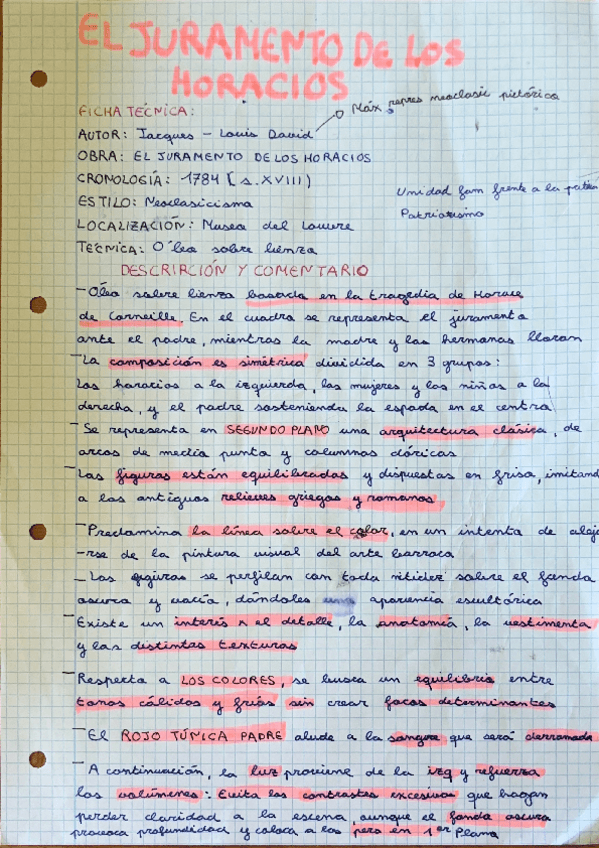 EL JURAMENTO DE LOS
HORACIOS
FICHA TÉCNICA:
Máx repres neoclasic pictórica
AUTOR: Jacques - Louis David
OBRA: EL JURAMENTO DE LOS HORACIOS
CRONOLOGÍA: 1784 (s.XVIII)
Unidad fam frente a la patria
ESTILO: Neoclasicismo
Patriotismo
LOCALIZACIÓN: Museo del Louvre
TECNICA: Óleo sobre lienzo
DESCRIPCIÓN Y COMENTARIO
- Óleo sobre lienzo basada en la tragedia de Horace
de Corneille. En el cuadro se representa el juramento
ante el padre, mientras la madre y las hermanas lloran
- La composición es simétrica dividida en 3 grupos:
Los horacios a la izquierda, las mujeres y los niños a la
derecha, y el padre sosteniendo la espada en el centro
- Se representa en SEGUNDO PLANO una arquitectura clásica, de
arcos de media punta y columnas dóricas
- Las figuras están equilibradas y dispuestas en friso, imitando
a los antiguos relieves griegos y romanos
- Predomina la línea sobre el color, en un intento de alej
-rse de la pintura visual del arte barroco
- Las figuras se perfilan con toda nitidez sobre el fondo
oscuro y vacío, dándoles apariencia escultórica
- Existe un interés x el detalle, la anatomía, la vestimenta
y las distintas texturas
- Respecto a LOS COLORES, se busca un equilibrio entre
tonos cálidos y fríos sin crear focos determinantes
- El ROJO TÚNICA PADRE alude a la sangre que será derramada
- A continuación, la luz proviene de la izq y refuerza
los volúmenes: Evita los contrastes excesivos que hagan
perder claridad a la escena, aunque el fondo oscuro
provoca profundidad y coloca a los pers en 1er Plano